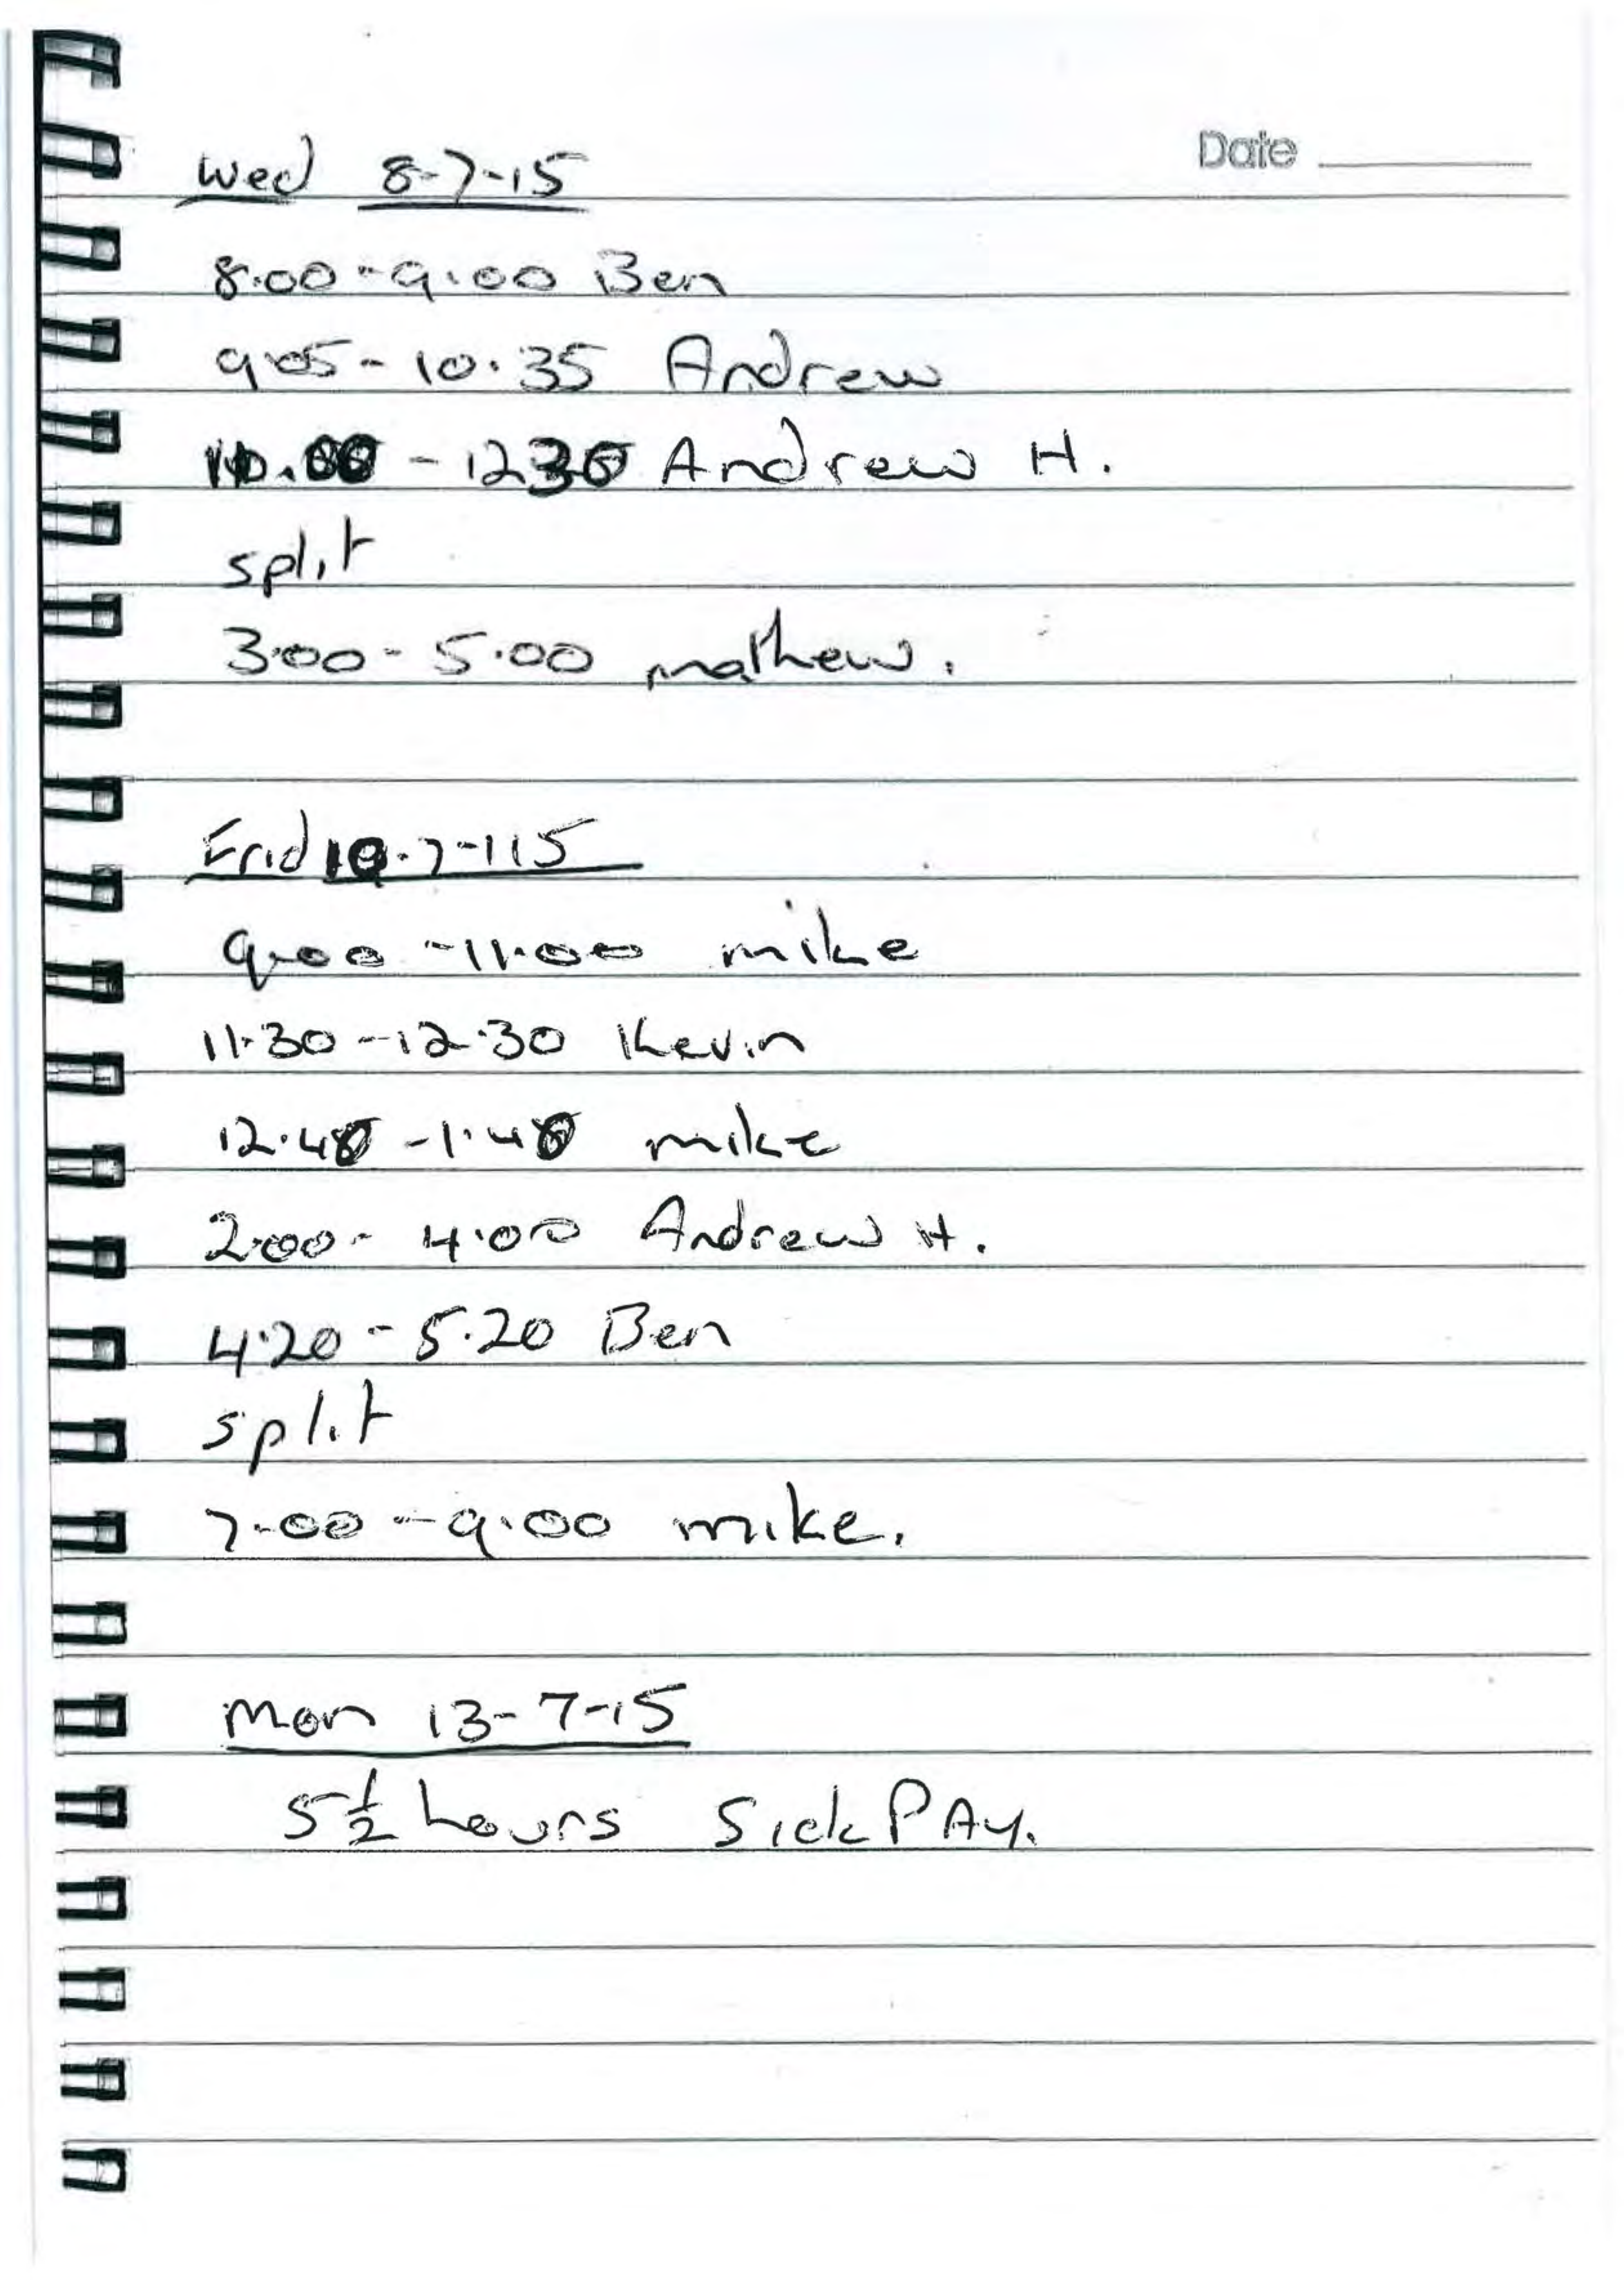 Date
Wed 8-7-15
8.00 - 9.00 Ben
9.05 - 10.35 Andrew
- 12 30 Andrew H.
split
3.00 - 5.00 mathew.
Frid 10-7-115
9.00 - 11.00 mike
11.30 - 12.30 Kevin
mike
2.00 - 4.00 Andrew H.
4.20 - 5.20 Ben
split
7.00 - 9.00 mike.
Mon 13-7-15
5 ½ hours Sick PAy.